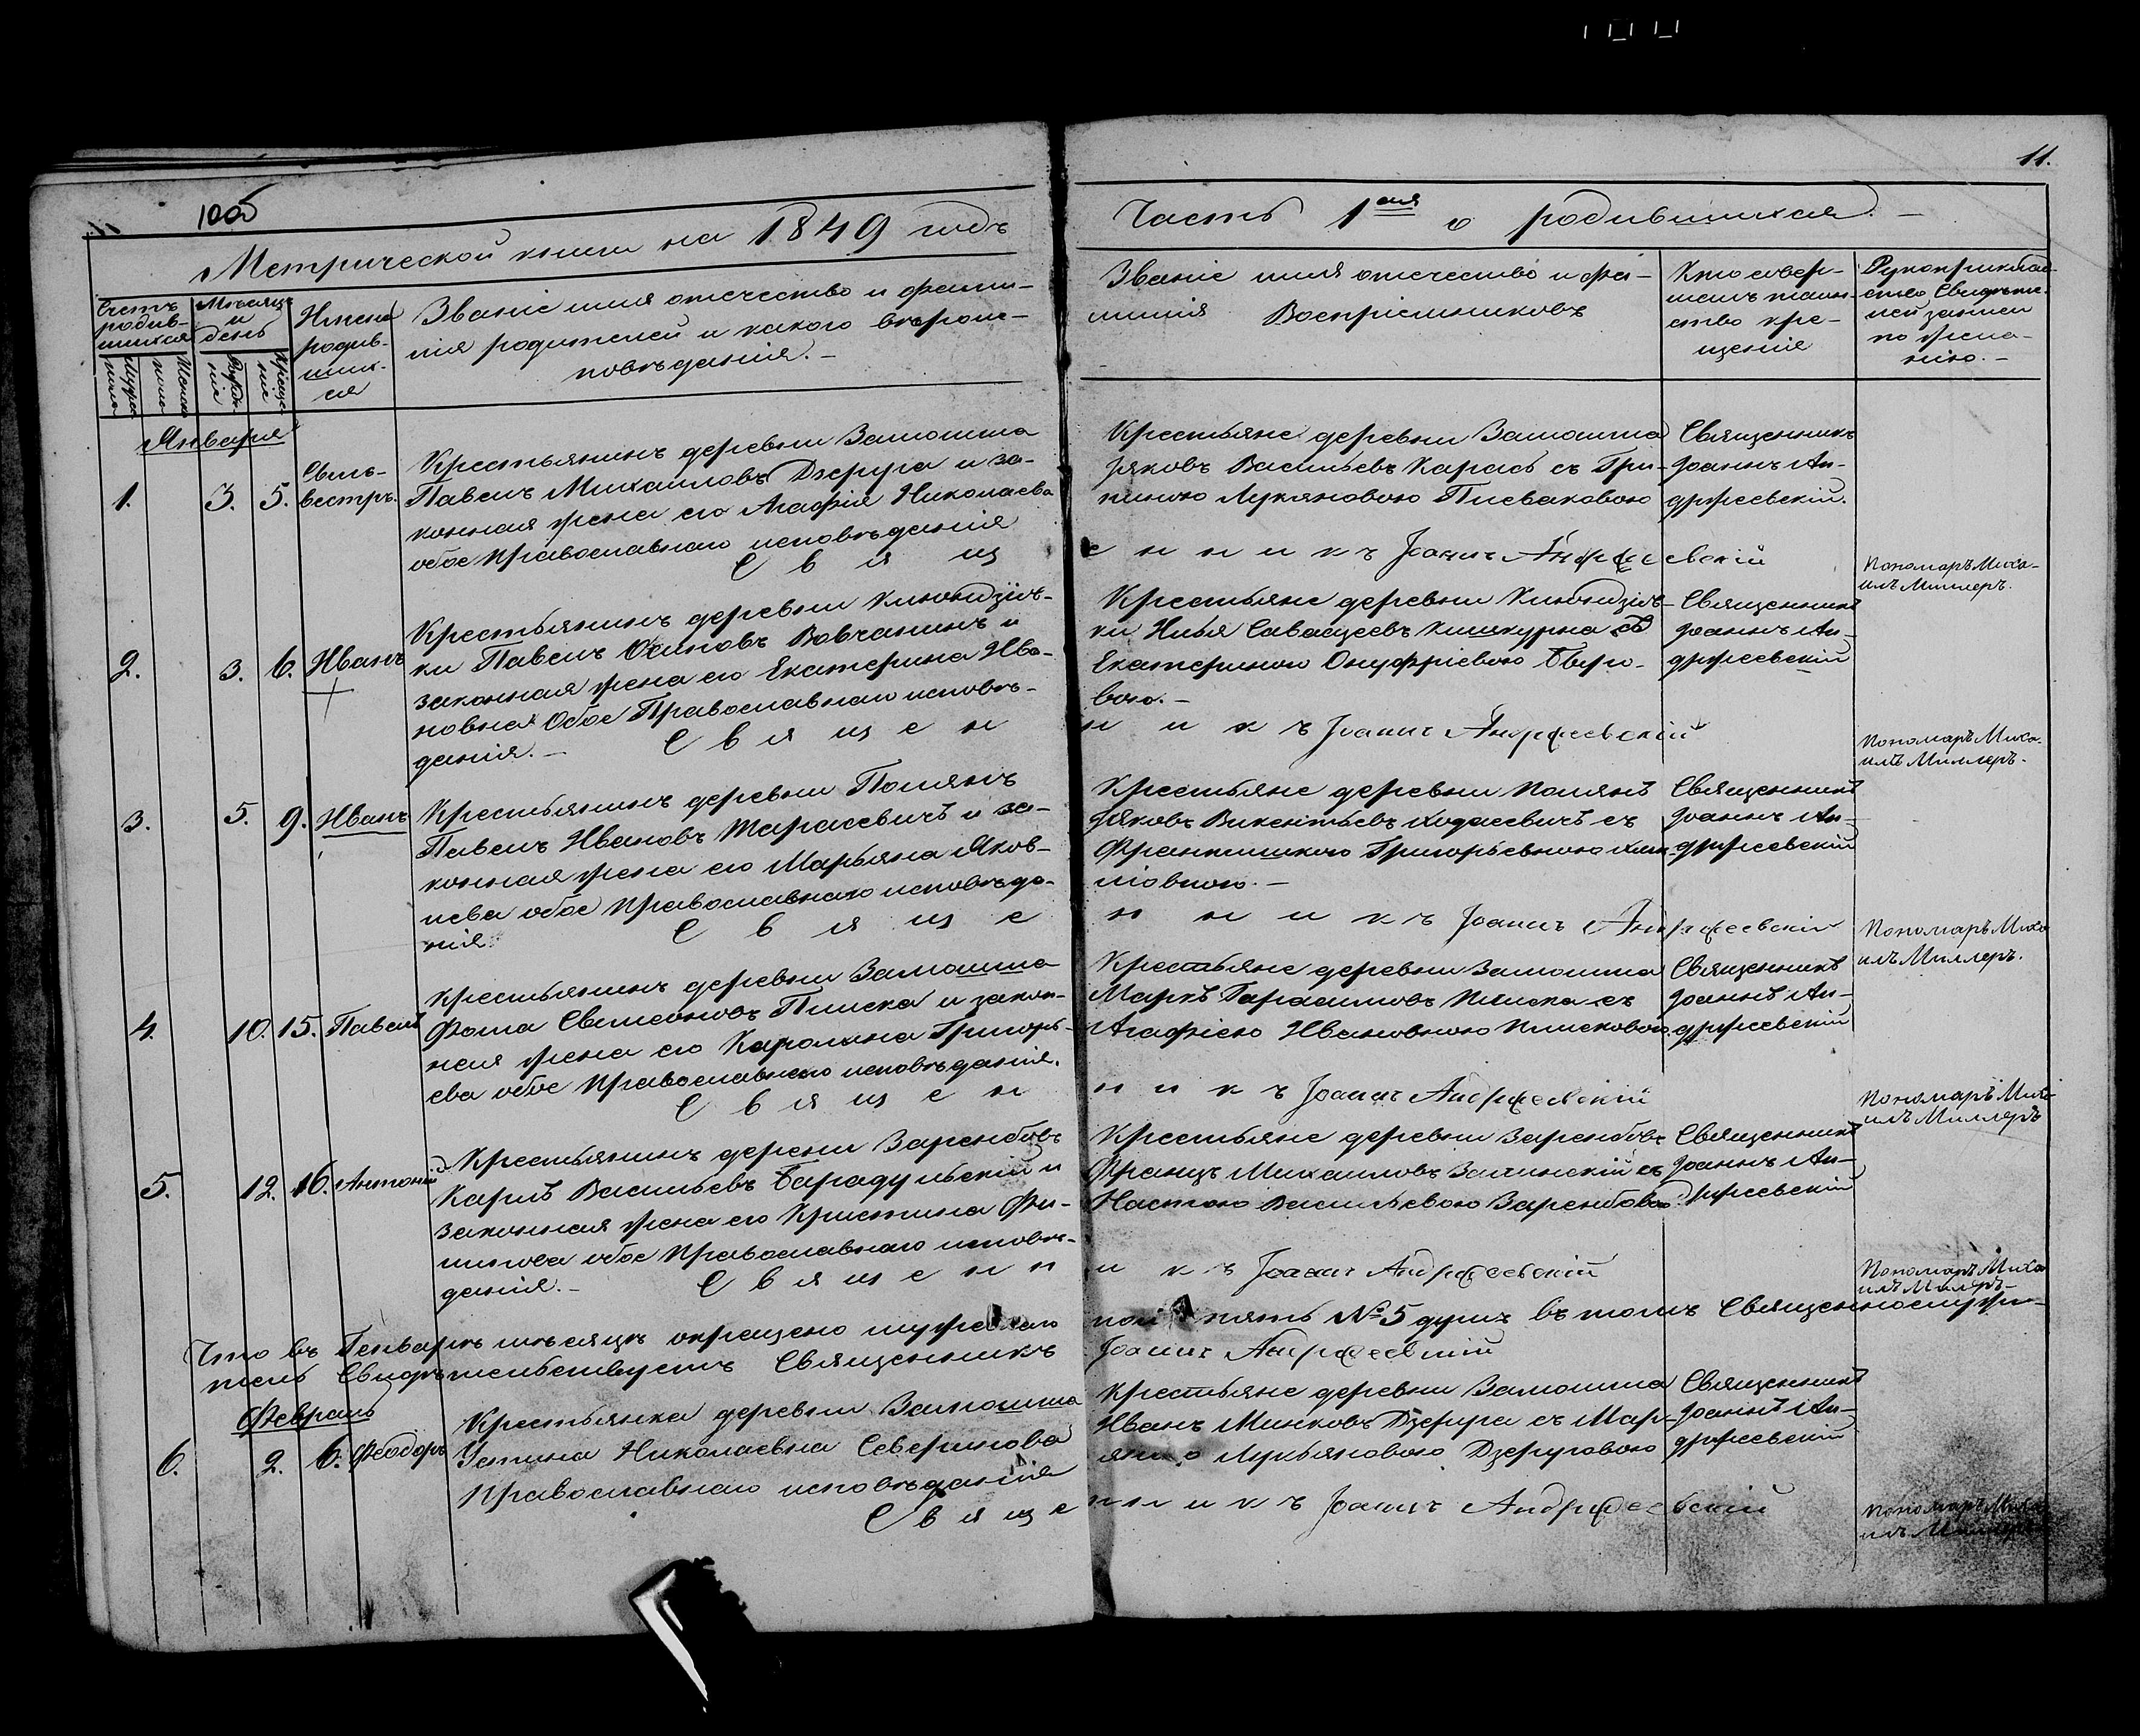 11.
10об
Метрической книги на 1849 годъ
Часть 1ая о родившихся. –
Счетъ
родив-
шихся
Мѣсяцъ
и
день
Имена
родив-
ших-
ся
Званіе имя отечество и фами-
лія родителей и какого вѣроис-
повѣданія. –
Званіе имя отечество и фа-
милія Воспріемниковъ
Кто совер-
шалъ таин-
ство кре-
щенія
Рукоприклад-
ство Свидѣте-
лей записи
по жела-
нію. –
Мужес
каго
Женска
го
Рожде-
нія
Креще-
нія
Января
1. 3. 5. Силь-
вестръ.
Крестьянинъ деревни Замошша
Павелъ Михаиловъ Дзеруга и за-
конная жена его Агафія Николаева
обое православнаго исповѣданія
Крестьяне деревни Замошша
Яковъ Васильевъ Карась съ Гри-
пиною Лукяновою Писваковою
Священникъ
Іоаннъ Ан-
држеевскій.
Священникъ Іоаннъ Андржеевскій
Пономаръ Миха-
илъ Миллеръ.
2. 3. 6. Иванъ
Крестьянинъ деревни
ки Павелъ Осиповъ Вовчанинъ и
законная жена его Екатерина Ива-
новна Обое Православнаго исповѣ-
данія. –
Крестьяне деревни
ки Илья Кишкурна съ
Екатериною Онуфріевою
вою. –
Священникъ
Іоаннъ Ан-
држеевскій
Священникъ Іоаннъ Андржеевскій
Пономаръ Миха-
илъ Миллеръ.
3. 5. 9. Иванъ
Крестьянинъ деревни Полянъ
Павелъ Ивановъ Тарасевичъ и за-
конная жена его Марьяна Яков-
лева обое православнаго исповѣда-
нія
Крестьяне деревни Полянъ
Яковъ Викентьевъ Ходасевичъ съ
Францишкою Григорьевною
ловною. –
Священникъ
Іоаннъ Ан-
држеевскій
Священникъ Іоаннъ Андржеевскій
Пономаръ Миха
илъ Миллеръ.
4. 10. 15. Павелъ
Крестьянинъ деревни Замошша
Фома Свмеоновъ Плиска и закон-
ная жена его Каролина Григорь-
ева обое Православнаго исповѣданія.
Крестьяне деревни Замошша
Маркъ Гарасимовъ Плиска съ
Агафіею Ивановною Плисковою.
Священникъ
Іоаннъ Ан-
држеевскій
Священникъ Іоаннъ Андржеевскій
Пономаръ Миха
илъ Миллеръ
5. 12. 16. Антоній
Крестьянинъ дерени Зарембовъ
Карлъ Васильевъ Барадульскій и
законная жена его Кристина Фи-
липова обое Православнаго исповѣ-
данія. –
Крестьяне деревни Зарембовъ
Францъ Михаиловъ Залинскій съ
Настою Васильевою Зарембовою
Священникъ
Іоаннъ Ан-
држеевскій
Священникъ Іоаннъ Андржеевскій
Пономаръ Миха
илъ Миллеръ –
Что въ Генварѣ мѣсяцѣ окрещено мужескаго пола пять №5 душъ въ томъ Священнослужи-
тель Свидѣтельствуетъ Священникъ Іоаннъ Андржеевскій
Февраль
6. 2. 6. Феодоръ
Крестьянка деревни Замошша
Устина Николаевна Северинова
Православнаго исповѣданія
Крестьяне деревни Замошша
Иванъ Минковъ Дзеруга съ Мар-
яною Лукьяновою Дзеруговою
Священникъ
Іоаннъ Ан-
држеевскій
Священникъ Іоаннъ Андржеевскій
Пономаръ Миха
илъ Миллеръ